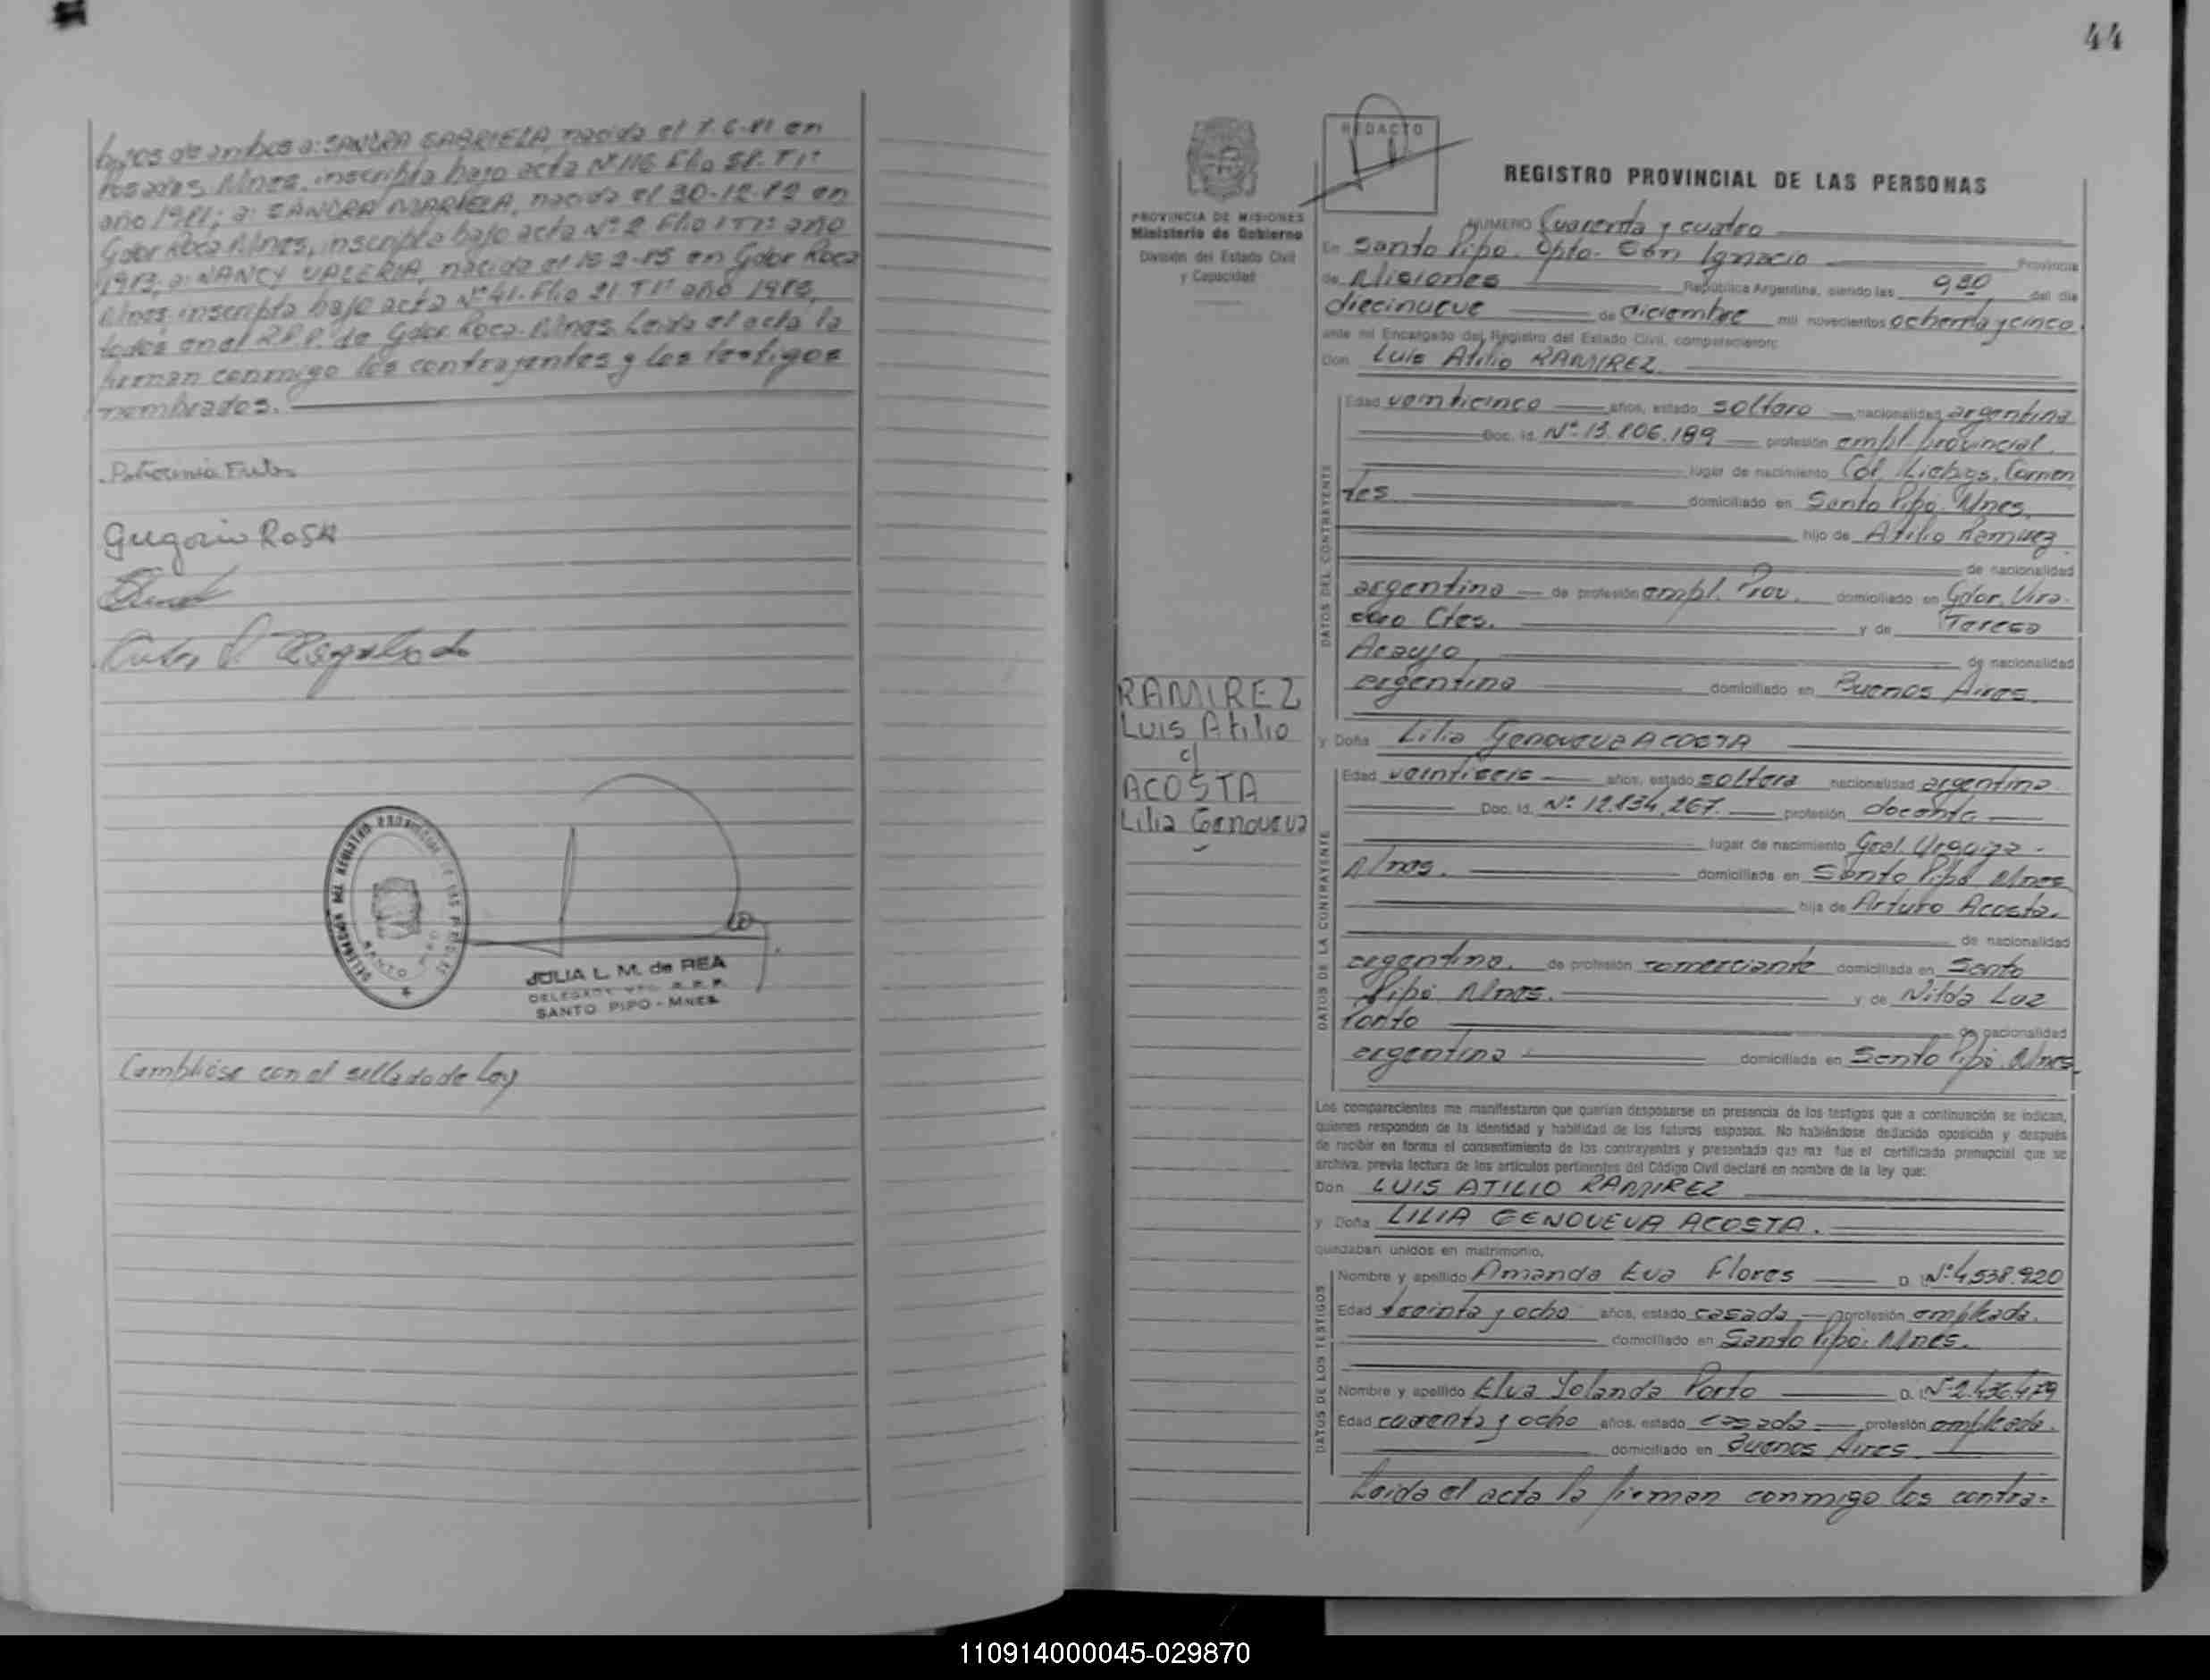 hijos de ambos a: SANDRA GABRIELA, nacida el 7-6-81 en
Posadas Mnes, inscripta bajo acta Nº 116 Flio 58. T1º
año 1981; a: SANDRA MARIELA, nacida el 30-12-82 en
Gdor Roca Mnes, inscripta bajo acta Nº 2 Flio 1 T1º año
1983; a: NANCY VALERIA, nacida el 2-85 en Gdor Roca
Mnes inscripta bajo acta Nº 41. Flio 21. T1º año 1985,
todos en el R.P.P. de Gdor. Roca-Mnes. Leida el acta la
firman conmigo los contrayentes y los testigos
nombrados.
Gregorio Rosa
DELEGACION DEL REGISTRO PROVINCIAL DE LAS PERSONAS
SANTO PIPO
JULIA L. M. de REA
DELEGADA R. P. P.
SANTO PIPO - MNES
Cumpliose con el sellado de Ley
44
PROVINCIA DE MISIONES
Ministerio de Gobierno
División del Estado Civil
y Capacidad
REDACTO
REGISTRO PROVINCIAL DE LAS PERSONAS
NUMERO Cuarenta y cuatro
En Santo Pipo. Dpto. San Ignacio Provincia
de Misiones República Argentina, siendo las 9 30 del día
diecinueve de diciembre mil novecientos ochenta y cinco.
ante mí Encargado del Registro del Estado Civil, comparecieron:
Don Luis Atilio RAMIREZ
DATOS DEL CONTRAYENTE
Edad veinticinco años, estado soltero nacionalidad argentina
Doc. Id. Nº 13.806.189 profesión empl. provincial.
lugar de nacimiento Col. Liebigs, Corrien
tes domiciliado en Santo Pipó. Mnes.
hijo de Atilio Ramirez
de nacionalidad
argentina de profesión empl. Prov. domiciliado en Gdor. Vira-
soro Ctes. y de Teresa
Araujo de nacionalidad
argentina domiciliado en Buenos Aires.
RAMIREZ
Luis Atilio
c/
ACOSTA
Lilia Genoveva
y Doña Lilia Genoveva ACOSTA
DATOS DE LA CONTRAYENTE
Edad veintiseis años, estado soltera nacionalidad argentina
Doc. Id. Nº 12.834.267. profesión docente
lugar de nacimiento Gral. Urquiza -
Mnes. domiciliada en Santo Pipó Mnes
hija de Arturo Acosta.
de nacionalidad
argentina. de profesión comerciante domiciliada en Santo
Pipó. Mnes. y de Nilda Luz
Porto de nacionalidad
argentina domiciliada en Santo Pipó. Mnes.
Los comparecientes me manifestaron que querían desposarse en presencia de los testigos que a continuación se indican,
quienes responden de la identidad y habilidad de los futuros esposos. No habiéndose deducido oposición y después
de recibir en forma el consentimiento de los contrayentes y presentado que me fue el certificado prenupcial que se
archiva, previa lectura de los artículos pertinentes del Código Civil declaré en nombre de la ley que:
Don LUIS ATILIO RAMIREZ
y Doña LILIA GENOVEVA ACOSTA.
quedaban unidos en matrimonio.
DATOS DE LOS TESTIGOS
Nombre y apellido Amanda Eva Flores D. I. Nº 4.538.920
Edad treinta y ocho años, estado casada profesión empleada.
domiciliado en Santo Pipó. Mnes.
Nombre y apellido Elva Yolanda Porto D. I. Nº 2.436.479
Edad cuarenta y ocho años, estado casada profesión empleada.
domiciliado en Buenos Aires
Leida el acta la firman conmigo los contra-
110914000045-029870